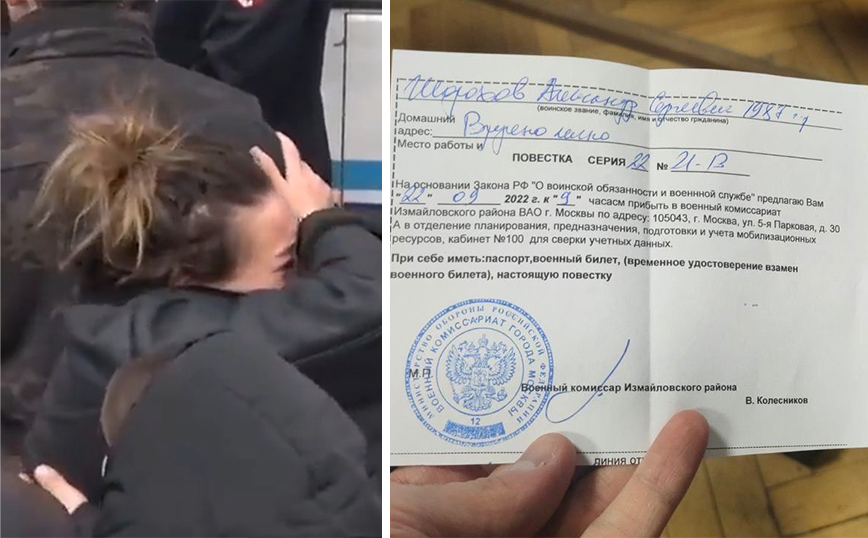 Шорохов Александр Сергеевич 1987 г
(воинское звание, фамилия, имя и отчество гражданина)
Домашний
адрес: Вручено лично
Место работы и
ПОВЕСТКА СЕРИЯ 22 № 21-В
На основании Закона РФ "О воинской обязанности и военнной службе" предлагаю Вам
"22" 09 2022 г. к "9" часасм прибыть в военный комиссариат
Измайловского района ВАО г. Москвы по адресу: 105043, г. Москва, ул. 5-я Парковая, д. 30
А в отделение планирования, предназначения, подготовки и учета мобилизационных
ресурсов, кабинет №100 для сверки учетных данных.
При себе иметь:паспорт,военный билет, (временное удостоверение взамен
военного билета), настоящую повестку
МИНИСТЕРСТВО ОБОРОНЫ РОССИЙСКОЙ ФЕДЕРАЦИИ
ВОЕННЫЙ КОМИССАРИАТ ГОРОДА МОСКВЫ
12
М.П.
Военный комиссар Измайловского района
В. Колесников
ЛИНИЯ ОТ